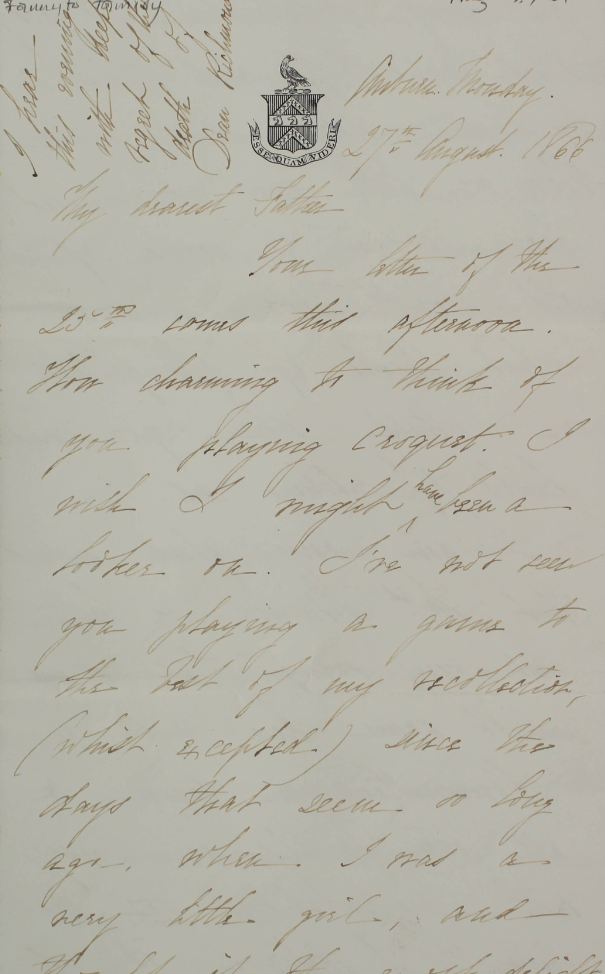 Fanny to Family
Aug 27
I hear
this evening
with deep
regret of the
death of
Dean Richmond
ESSE QUAM VIDERI
Auburn. Monday.
27th August. 1866
My dearest Father
Your letter of the
25th comes this afternoon.
How charming to think of
you playing Croquet. I
wish I might have been a
looker on. I've not seen
you playing a game to
the best of my recollection,
(whist excepted.) since the
days that seem so long
ago. when I was a
very little girl, and